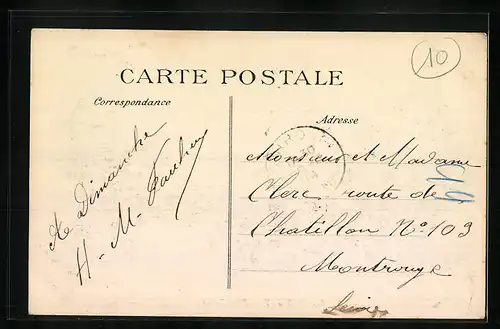 10
CARTE POSTALE
Correspondance
Adresse
A Dimanche
H - M -
Monsieur et Madame
Clerc route de
Chatillon N° 103
Montrouge
Seine